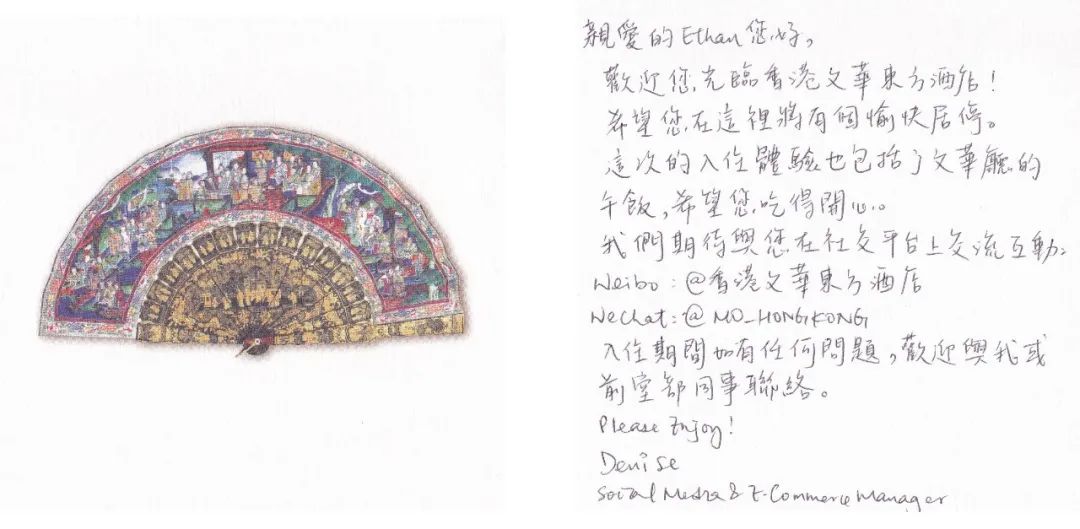 親愛的Ethan您好，
歡迎您光臨香港文華東方酒店！
希望您在這裡將有個愉快居停。
這次的入住體驗也包括了文華廳的
午飯，希望您吃得開心。
我們期待與您在社交平台上交流互動。
Weibo：@香港文華東方酒店
WeChat：@MO_HONGKONG
入住期間如有任何問題，歡迎與我或
前堂部同事聯絡。
Please Enjoy!
Denise
Social Media & E-Commerce Manager